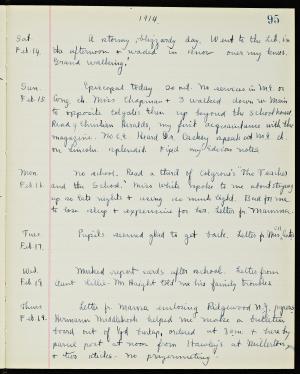 1914.
95
Sat.
Feb. 14.
A stormy, blizzardy day. Went to the Lib. in
the afternoon & waded in snow over my knees.
Grand walking!
Sun.
Feb. 15.
Episcopal today so ed. No services in M.E. or
Cong. ch. Miss Chapman & I walked down w. Main
to opposite Colgates then up beyond the Schoolhouse
Read Christian Heralds, my first acquaintance with the
magazine. No C.E. Heard Dr. speak at M.E. ch.
on Lincoln. splendid. Piped my notes.
Mon.
Feb. 16.
No school. Read a third of Colgrove's "The Teacher
and the School." Miss White spoke to me about staying
up so late nights & using so much light. Bad for me
to lose sleep & expensive for her. Letter fr. Mamma.
Tues.
Feb. 17.
Pupils seemed glad to get back. Letter fr. Miss
Wed.
Feb. 18
Marked report cards after school. Letter from
Aunt Mr. Haight told me his family troubles.
Thurs.
Feb. 19.
Letter fr. Mamma enclosing Ridgewood N.J. papers
Hermann Middlebrook helped me make a bulletin
board out of yd burlap, ordered at 8 a.m. & here by
parcel post at noon from Hawley's at Millerton
& two sticks. No prayermeeting.